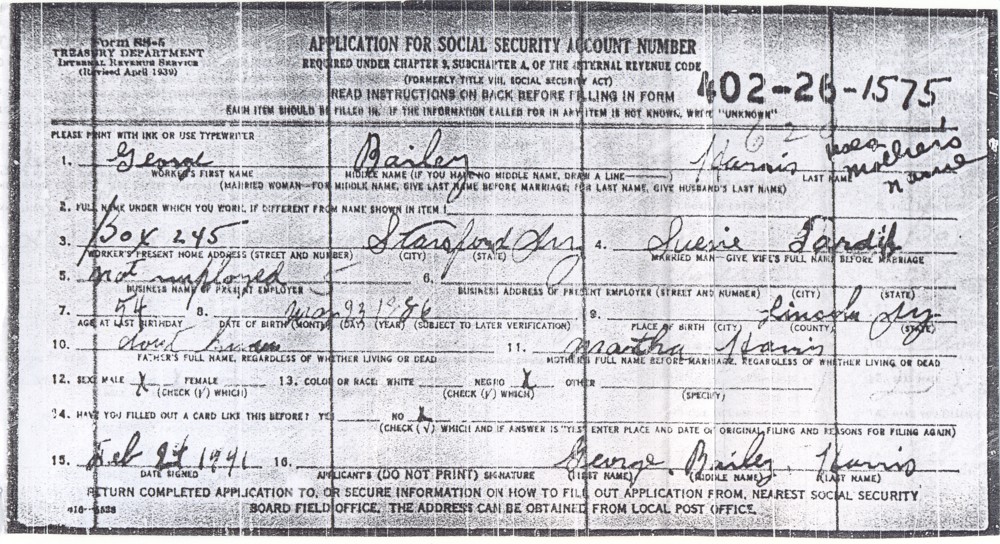 Form SS-5
TREASURY DEPARTMENT
INTERNAL REVENUE SERVICE
(Revised April 1939)
APPLICATION FOR SOCIAL SECURITY ACCOUNT NUMBER
REQUIRED UNDER CHAPTER 9, SUBCHAPTER A, OF THE INTERNAL REVENUE CODE
(FORMERLY TITLE VIII, SOCIAL SECURITY ACT)
READ INSTRUCTIONS ON BACK BEFORE FILLING IN FORM
402-26-1575
EACH ITEM SHOULD BE FILLED IN. IF THE INFORMATION CALLED FOR IN ANY ITEM IS NOT KNOWN, WRITE "UNKNOWN"
PLEASE PRINT WITH INK OR USE TYPEWRITER
1. George Bailey Harris
mothers
name
WORKER'S FIRST NAME MIDDLE NAME (IF YOU HAVE NO MIDDLE NAME, DRAW A LINE ) LAST NAME
(MARRIED WOMAN—FOR MIDDLE NAME, GIVE LAST NAME BEFORE MARRIAGE; FOR LAST NAME, GIVE HUSBAND'S LAST NAME)
2. FULL NAME UNDER WHICH YOU WORK, IF DIFFERENT FROM NAME SHOWN IN ITEM 1
3. Box 245 4.
WORKER'S PRESENT HOME ADDRESS (STREET AND NUMBER) (CITY) (STATE) MARRIED MAN—GIVE WIFE'S FULL NAME BEFORE MARRIAGE
5. not employed 6.
BUSINESS NAME OF PRESENT EMPLOYER BUSINESS ADDRESS OF PRESENT EMPLOYER (STREET AND NUMBER) (CITY) (STATE)
7. 54 8. 9. Lincoln Ky
AGE AT LAST BIRTHDAY DATE OF BIRTH (MONTH) (DAY) (YEAR) (SUBJECT TO LATER VERIFICATION) PLACE OF BIRTH (CITY) (COUNTY) (STATE)
10. 11. Martha Harris
FATHER'S FULL NAME, REGARDLESS OF WHETHER LIVING OR DEAD MOTHER'S FULL NAME BEFORE MARRIAGE, REGARDLESS OF WHETHER LIVING OR DEAD
12. SEX: MALE X FEMALE 13. COLOR OR RACE: WHITE NEGRO X OTHER
(CHECK (√) WHICH) (CHECK (√) WHICH) (SPECIFY)
14. HAVE YOU FILLED OUT A CARD LIKE THIS BEFORE? YES NO X
(CHECK (√) WHICH AND IF ANSWER IS "YES" ENTER PLACE AND DATE OF ORIGINAL FILING AND REASONS FOR FILING AGAIN)
15. Feb 24 1941 16. George Bailey Harris
DATE SIGNED APPLICANT'S (DO NOT PRINT) SIGNATURE (FIRST NAME) (MIDDLE NAME) (LAST NAME)
RETURN COMPLETED APPLICATION TO, OR SECURE INFORMATION ON HOW TO FILL OUT APPLICATION FROM, NEAREST SOCIAL SECURITY
BOARD FIELD OFFICE. THE ADDRESS CAN BE OBTAINED FROM LOCAL POST OFFICE.